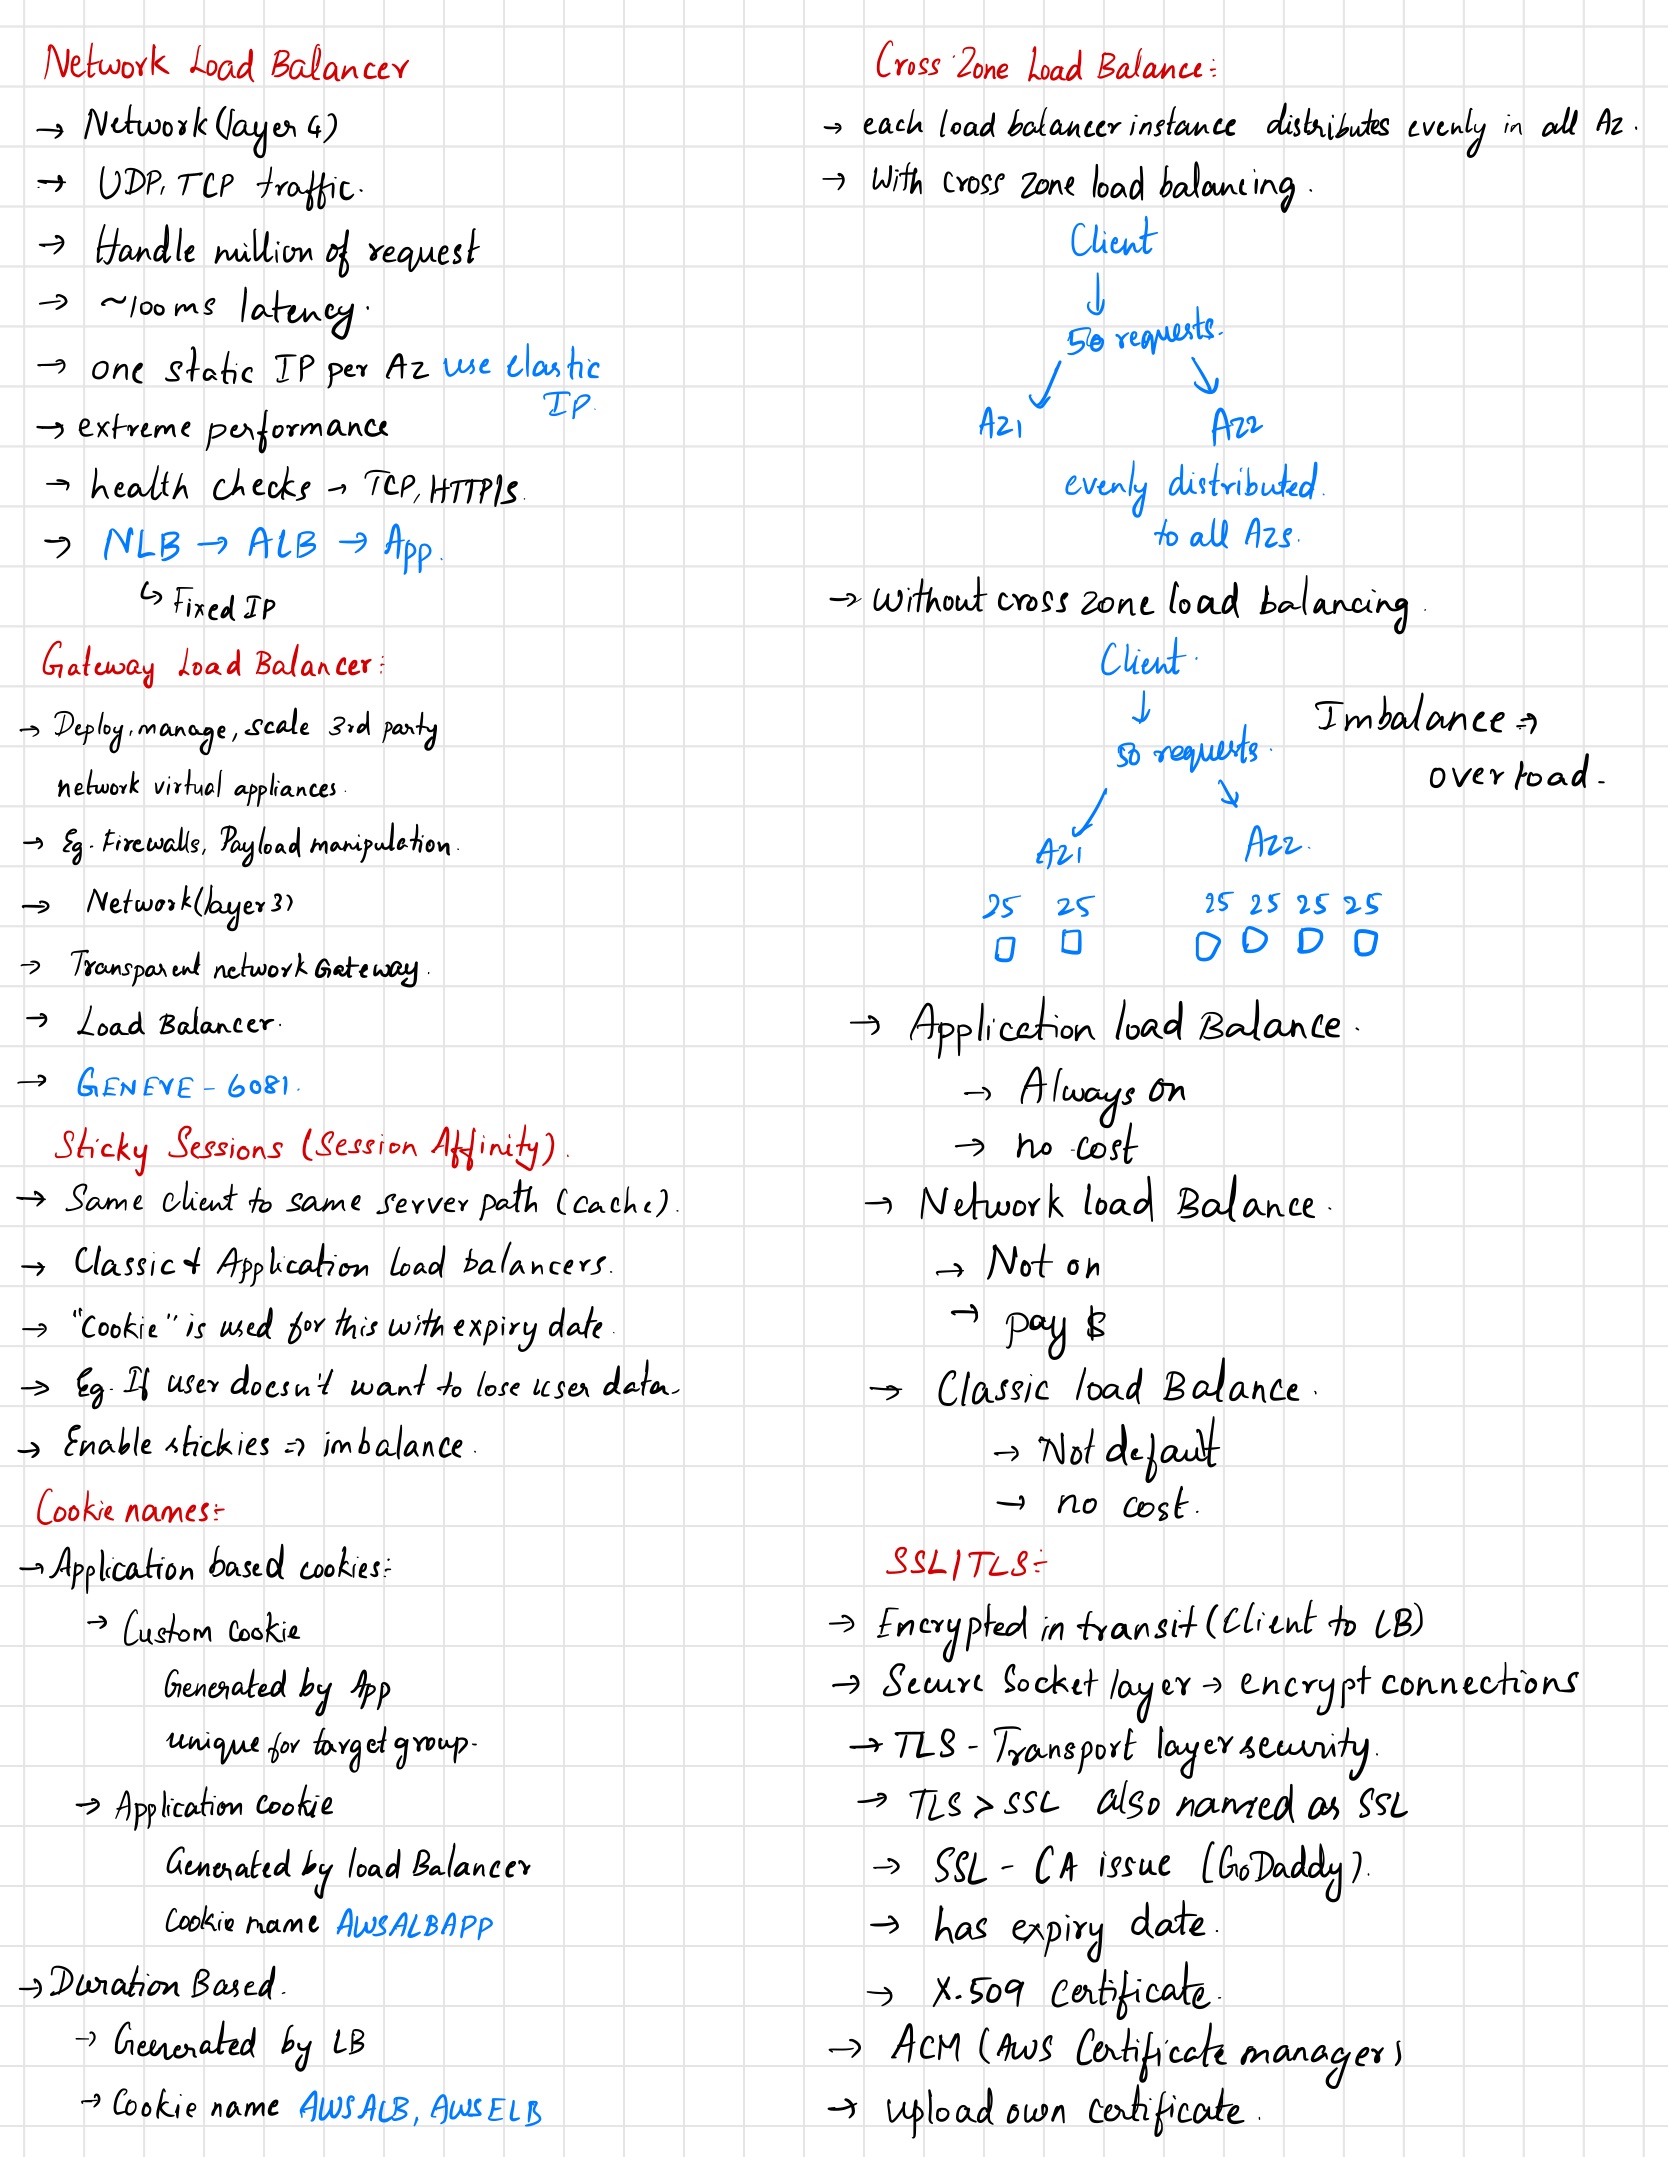 Network Load Balancer
→ Network (layer 4)
→ UDP, TCP traffic.
→ Handle million of request
→ ~100ms latency.
→ one static IP per AZ use elastic
IP.
→ extreme performance
→ health checks → TCP, HTTP/S.
→ NLB → ALB → App.
↳ Fixed IP
Gateway Load Balancer:
→ Deploy, manage, scale 3rd party
network virtual appliances.
→ Eg. Firewalls, Payload manipulation.
→ Network (layer 3)
→ Transparent network Gateway.
→ Load Balancer.
→ GENEVE - 6081.
Sticky Sessions (Session Affinity).
→ Same client to same server path (cache).
→ Classic & Application load balancers.
→ "Cookie" is used for this with expiry date.
→ Eg. If user doesn't want to lose user data.
→ Enable stickies => imbalance.
Cookie names:-
→ Application based cookies:-
→ Custom cookie
Generated by App
unique for target group.
→ Application cookie
Generated by load Balancer
Cookie name AWSALBAPP
→ Duration Based.
→ Geenerated by LB
→ Cookie name AWSALB, AWSELB
Cross Zone Load Balance:-
→ each load balancer instance distributes evenly in all AZ.
→ With cross zone load balancing.
Client
↓
50 requests.
AZ1 AZ2
evenly distributed.
to all AZs.
→ Without cross zone load balancing.
Client.
↓
50 requests.
Imbalance =>
overload.
AZ1 AZ2.
25 25 25 25 25 25
→ Application load Balance.
→ Always on
→ no cost
→ Network load Balance.
→ Not on
→ pay $
→ Classic load Balance.
→ Not default
→ no cost.
SSL/TLS:-
→ Encrypted in transit (Client to LB)
→ Secure Socket layer → encrypt connections
→ TLS - Transport layer security.
→ TLS > SSL also named as SSL
→ SSL - CA issue (GoDaddy).
→ has expiry date.
→ X.509 certificate.
→ ACM (AWS Certificate manager)
→ upload own certificate.